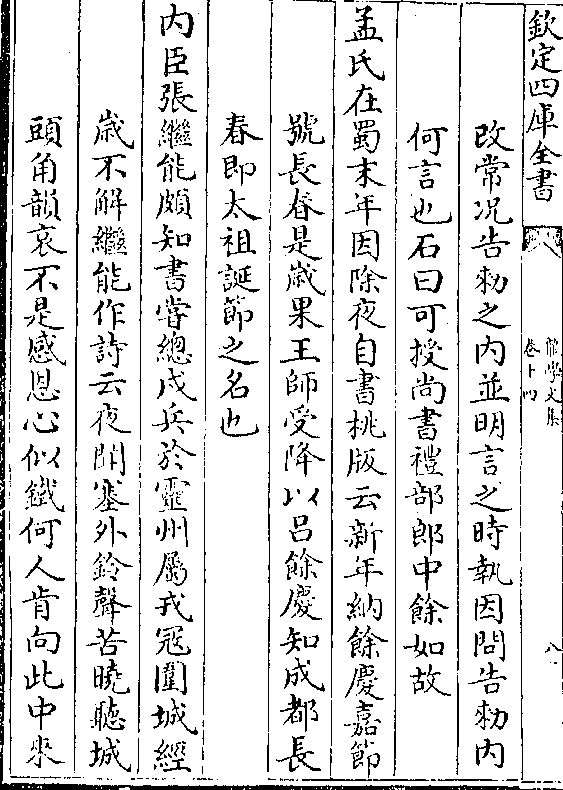 欽定四庫全書
儒學文集
卷十四
八
改常况告勑之内並明言之時執因問告勑内
何言也石曰可授尚書禮部郎中餘如故
孟氏在蜀末年因除夜自書桃版云新年納餘慶嘉節
號長春是嵗果王師受降以吕餘慶知成都長
春即太祖誕節之名也
内臣張繼能頗知書嘗總戍兵於靈州屬戎冦圍城經
嵗不解繼能作詩云夜聞塞外鈴聲苦曉聽城
頭角韻哀不是感恩心似鐵何人肯向此中來